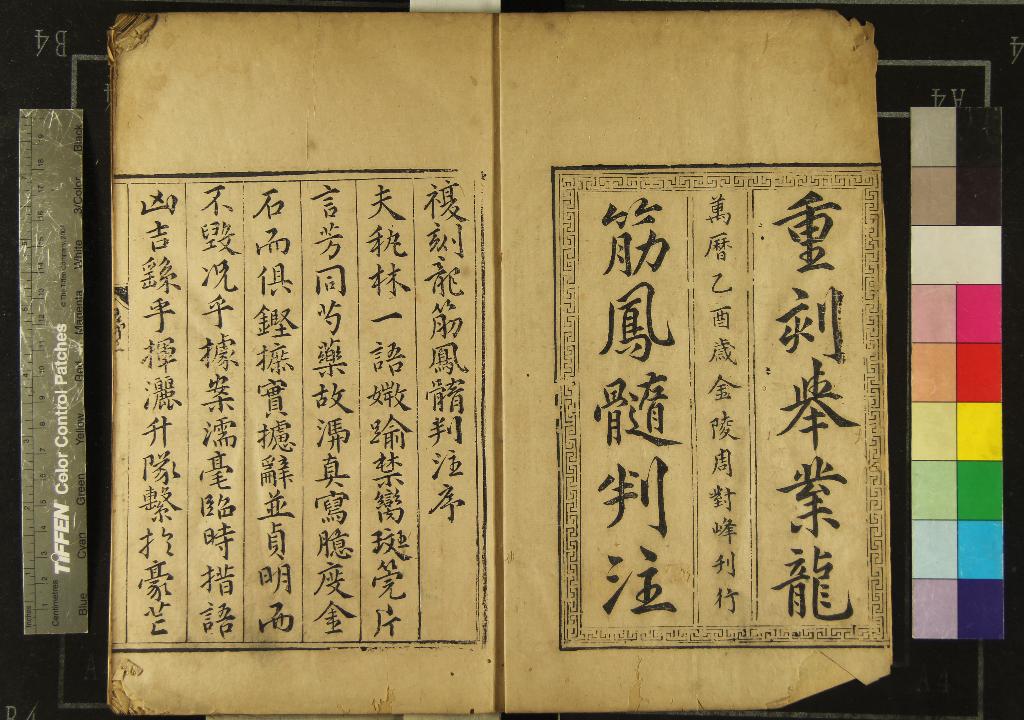 重刻舉業龍
萬曆乙酉歲金陵周對峰刋行
筋鳳髓判注
複刻龍筋鳳髓判注序
夫秇林一語媺踰禁臠斑筦片
言芳同芍藥故清真寫臆庋金
石而俱鏗摭實攄辭並貞明而
不毀况乎據案濡毫臨時措語
凶吉繇乎揮灑升隊繫扵豪芒
TIFFEN Color Control Patches
Blue Cyan Green Yellow Red Magenta White 3/Color Black
Inches
Centimetres
B4
A4